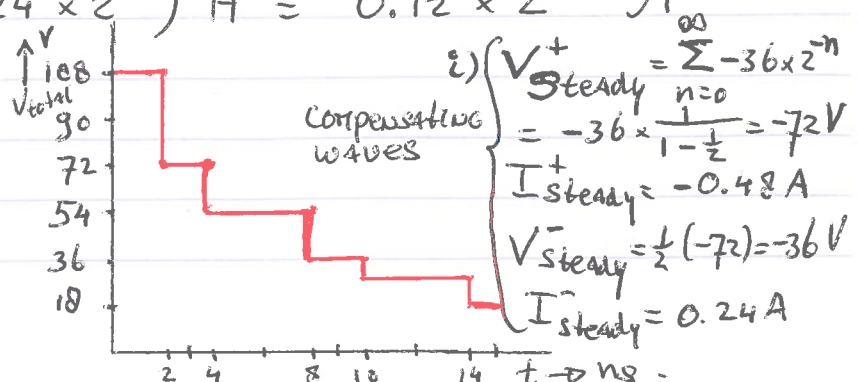 24 × 2 ) A = 0.12 × 2
V
Vtotal
108
90
72
54
36
18
2 4 8 10 14 t → ns.
COMPENSATING
WAVES
i) V⁺steady = ∞ Σ n=0 -36×2⁻ⁿ
= -36 × 1/(1 - ½) = -72V
I⁺steady = -0.48 A
V⁻steady = ½ (-72) = -36 V
I⁻steady = 0.24 A